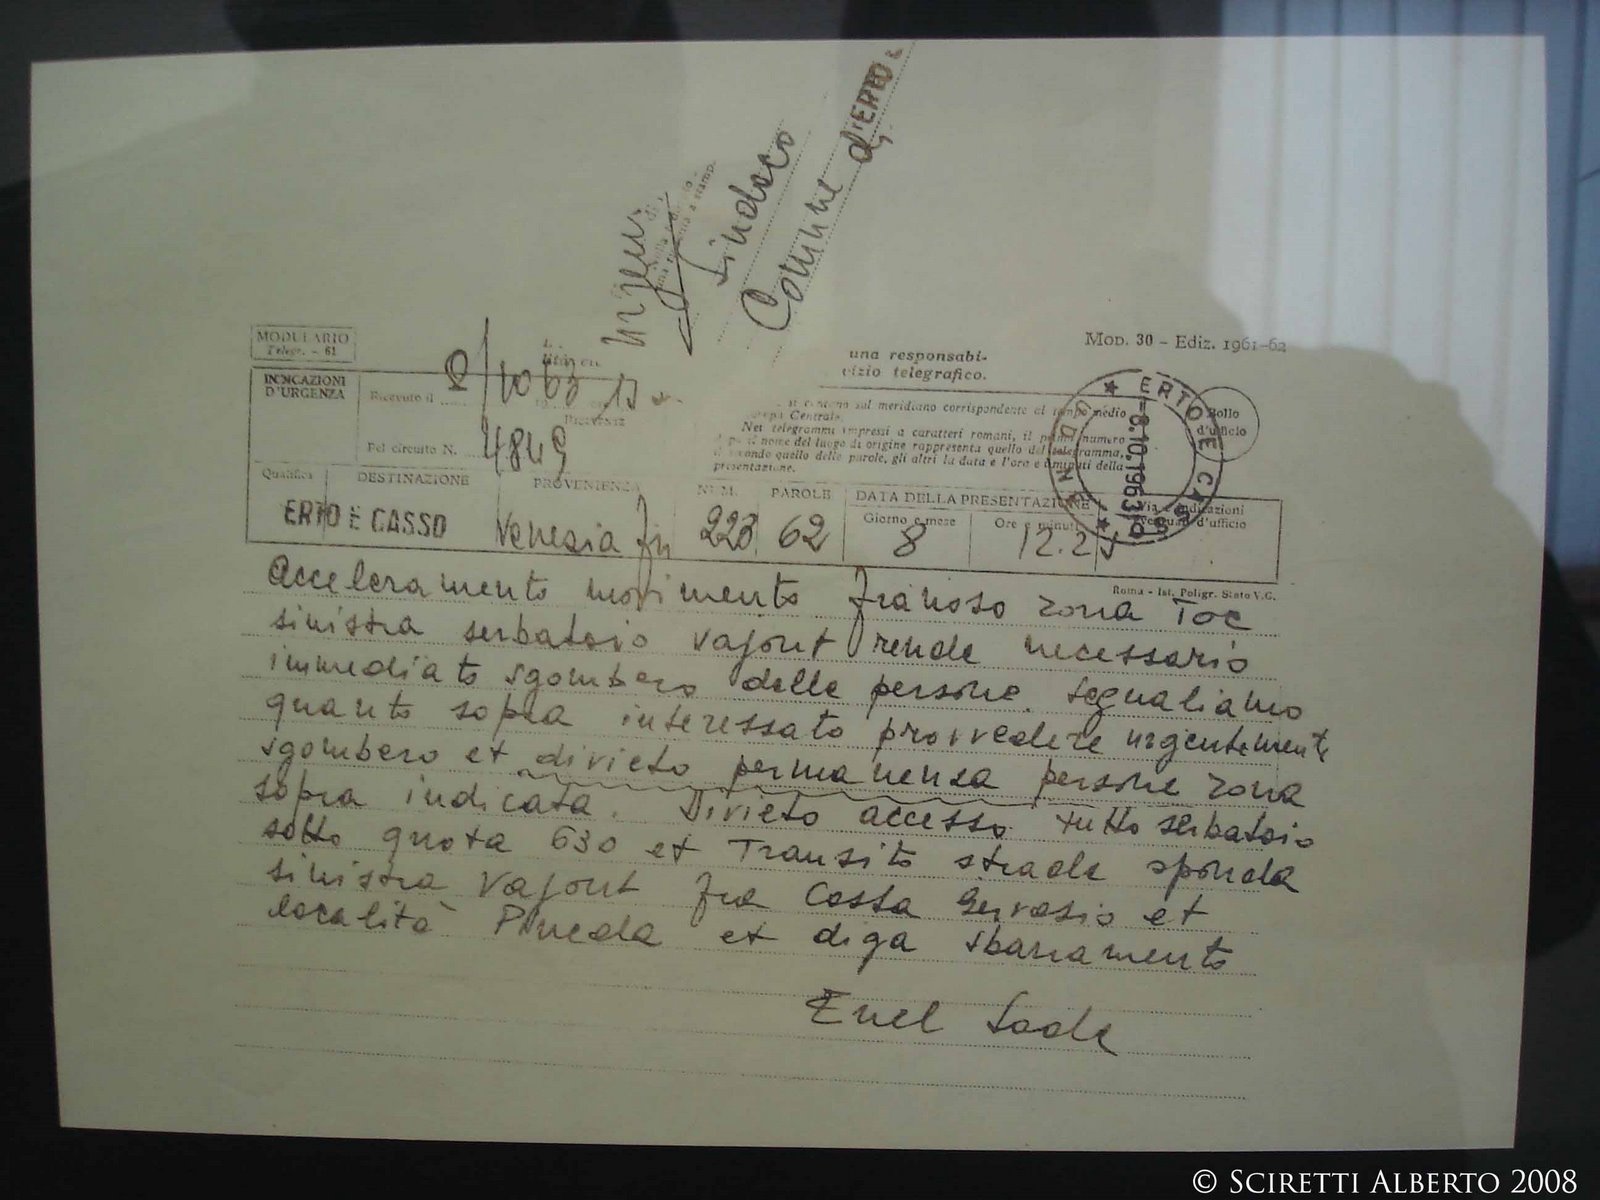 Urgent
Sindaco
Comune d'ERTO
MODULARIO
Telegr. - 61
Mod. 30 - Ediz. 1961-62
una responsabi-
vizio telegrafico.
INDICAZIONI
D'URGENZA
Ricevuto il 8/10 63 13
Pel circuito N. 4849
si contano sul meridiano corrispondente al tempo medio
Europa Centrale.
Nei telegrammi impressi a caratteri romani, il primo numero
dopo il nome del luogo di origine rappresenta quello del telegramma,
il secondo quello delle parole, gli altri la data e l'ora e minuti della
presentazione.
ERTO E CASSO
UDINE
-8.10.1963
Bollo
d'ufficio
Qualifica
DESTINAZIONE
PROVENIENZA
NUM.
PAROLE
DATA DELLA PRESENTAZIONE
Giorno e mese
Ore e minuti
Via e indicazioni
eventuali d'ufficio
ERTO E CASSO Venezia 223 62 8 12.25
Roma - Ist. Poligr. Stato V.C.
Acceleramento movimento franoso zona Toc
sinistra serbatoio Vajont rende necessario
immediato sgombero delle persone. Segnaliamo
quanto sopra interessato provvedere urgentemente
sgombero et divieto permanenza persone zona
sopra indicata. Divieto accesso tutto serbatoio
sotto quota 630 et Transito strade sponda
sinistra Vajont fra Costa Gervasio et
località Pineda et diga sbarramento
Enel Sade
© Sciretti Alberto 2008